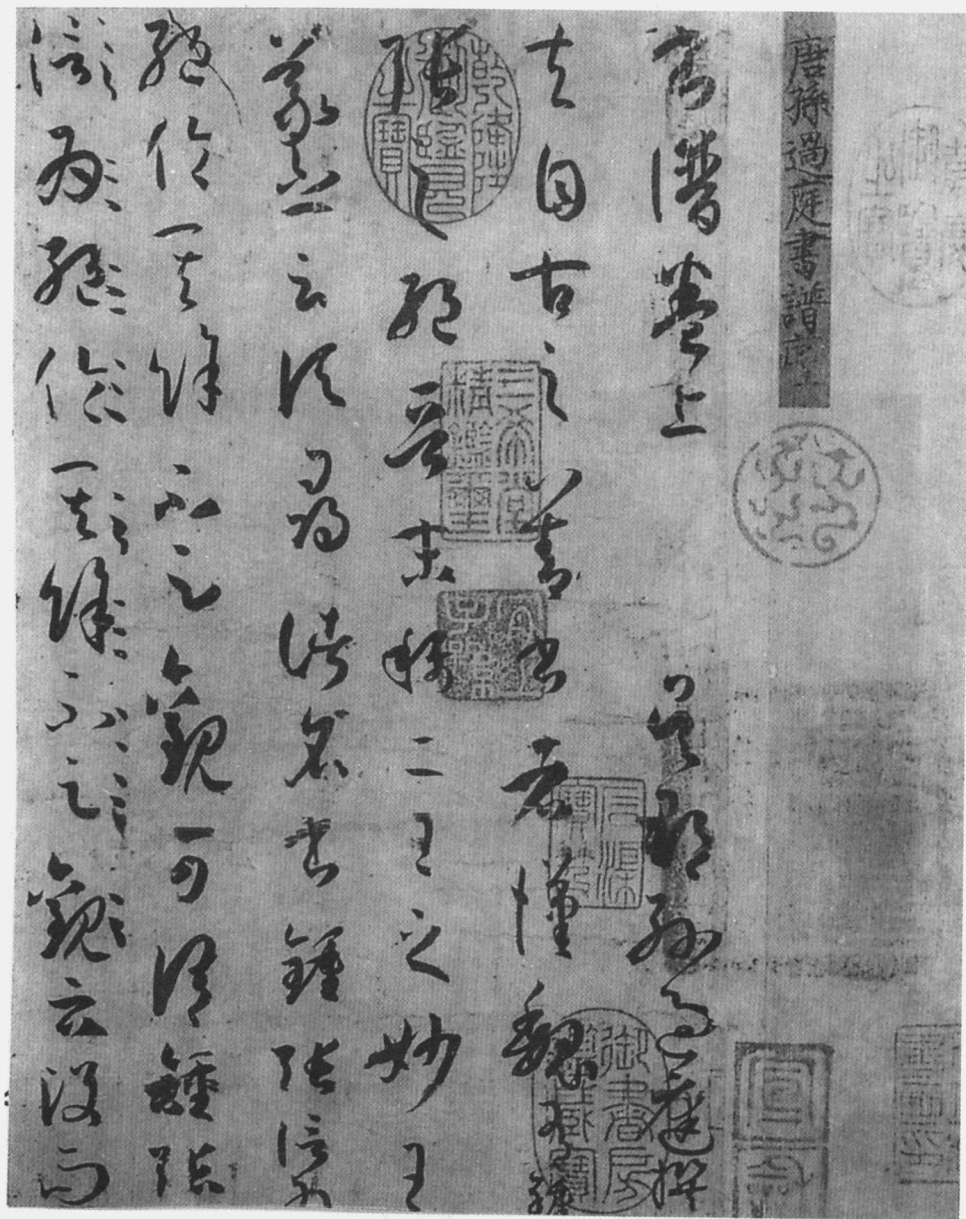 唐孫過庭書譜序
書譜卷上 吳郡孫過庭撰
夫自古之善書者漢魏有鍾
張之絕晉末稱二王之妙王
羲之云頃尋諸名書鍾張信為
絕倫其餘不足觀可謂鍾張
信為絕倫其餘不足觀云沒而
乾隆御覽之寶
三希堂精鑑璽
宜子孫
石渠寶笈
御書房鑑藏寶
宣和